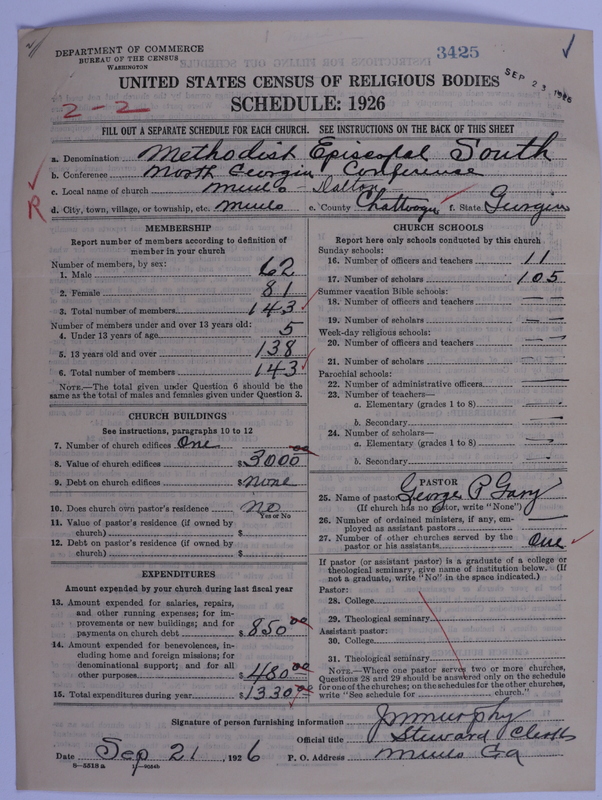 DEPARTMENT OF COMMERCE
BUREAU OF THE CENSUS
WASHINGTON
3425
SEP 23 1926
UNITED STATES CENSUS OF RELIGIOUS BODIES
SCHEDULE: 1926
2-2
FILL OUT A SEPARATE SCHEDULE FOR EACH CHURCH. SEE INSTRUCTIONS ON THE BACK OF THIS SHEET
a. Denomination Methodist Episcopal South
b. Conference North Georgia Conference
c. Local name of church - Dalton
R
d. City, town, village, or township, etc. e. County Chattooga f. State Georgia
MEMBERSHIP
Report number of members according to definition of
member in your church
Number of members, by sex:
1. Male 62
2. Female 81
3. Total number of members 143
Number of members under and over 13 years old:
4. Under 13 years of age 5
5. 13 years old and over 138
6. Total number of members 143
NOTE.—The total given under Question 6 should be
same as the total of males and females given under Question 3.
CHURCH BUILDINGS
See instructions, paragraphs 10 to 12
7. Number of church edifices One
8. Value of church edifices $3000 00
9. Debt on church edifices $none
10. Does church own pastor's residence No
Yes or No
11. Value of pastor's residence (if owned by
church) $
12. Debt on pastor's residence (if owned by
church) $
EXPENDITURES
Amount expended by your church during last fiscal year
13. Amount expended for salaries, repairs,
and other running expenses; for im-
provements or new buildings; and for
payments on church debt $850 00
14. Amount expended for benevolences, in-
cluding home and foreign missions; for
denominational support; and for all
other purposes $480 00
15. Total expenditures during year $1330 00
CHURCH SCHOOLS
Report here only schools conducted by this church
Sunday schools:
16. Number of officers and teachers 11
17. Number of scholars 105
Summer vacation Bible schools:
18. Number of officers and teachers
19. Number of scholars
Week-day religious schools:
20. Number of officers and teachers
21. Number of scholars
Parochial schools:
22. Number of administrative officers
23. Number of teachers—
a. Elementary (grades 1 to 8)
b. Secondary
24. Number of scholars—
a. Elementary (grades 1 to 8)
b. Secondary
PASTOR
25. Name of pastor George P Gary
(If church has no pastor, write "None")
26. Number of ordained ministers, if any, em-
ployed as assistant pastors
27. Number of other churches served by the
pastor or his assistants One
If pastor (or assistant pastor) is a graduate of a college or
theological seminary, give name of institution below. (If
not a graduate, write "No" in the space indicated.)
Pastor:
28. College
29. Theological seminary
Assistant pastor:
30. College
31. Theological seminary
NOTE.—Where one pastor serves two or more churches,
Questions 28 and 29 should be answered only on the schedule
for one of the churches; on the schedules for the other churches,
write "See schedule for church."
Signature of person furnishing information Murphy
Official title Steward
Date Sep 21, 1926 P. O. Address Ga
8-5518a